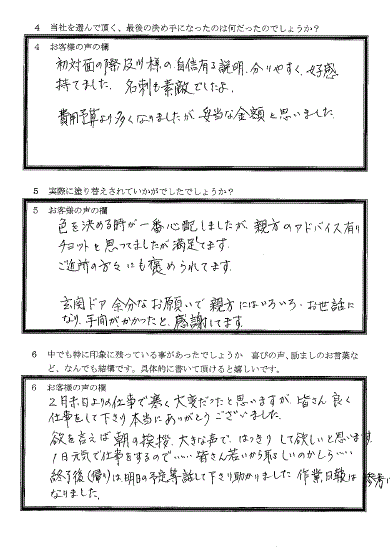 4 当社を選んで頂く、最後の決め手になったのは何だったのでしょうか？
4 お客様の声の欄
初対面の際及川様の自信有る説明、分りやすく、好感
持てました. 名刺も素敵でしたよ.
費用予算より多くなりましたが妥当な金額と思いました.
5 実際に塗り替えされていかがでしたでしょうか？
5 お客様の声の欄
色を決める時が一番心配しましたが、親方のアドバイス有り
チョットと思ってましたが満足してます.
ご近所の方々にも褒められてます.
玄関ドア余分なお願いで親方にはいろいろお世話に
なり、手間がかかったと、感謝してます.
6 中でも特に印象に残っている事があったでしょうか 喜びの声、励ましのお言葉な
ど、なんでも結構です。具体的に書いて頂けると嬉しいです。
6 お客様の声の欄
2月末日よりの仕事で寒く大変だったと思いますが、皆さん良く
仕事をして下さり本当にありがとうございました.
欲を言えば朝の挨拶、大きな声で、はっきりして欲しいと思います
1日元気で仕事をするので…… 皆さん若いから恥しいのかしら……
終了後(帰り)は明日の予定等話して下さり助かりました 作業日報は参考に
なりました。